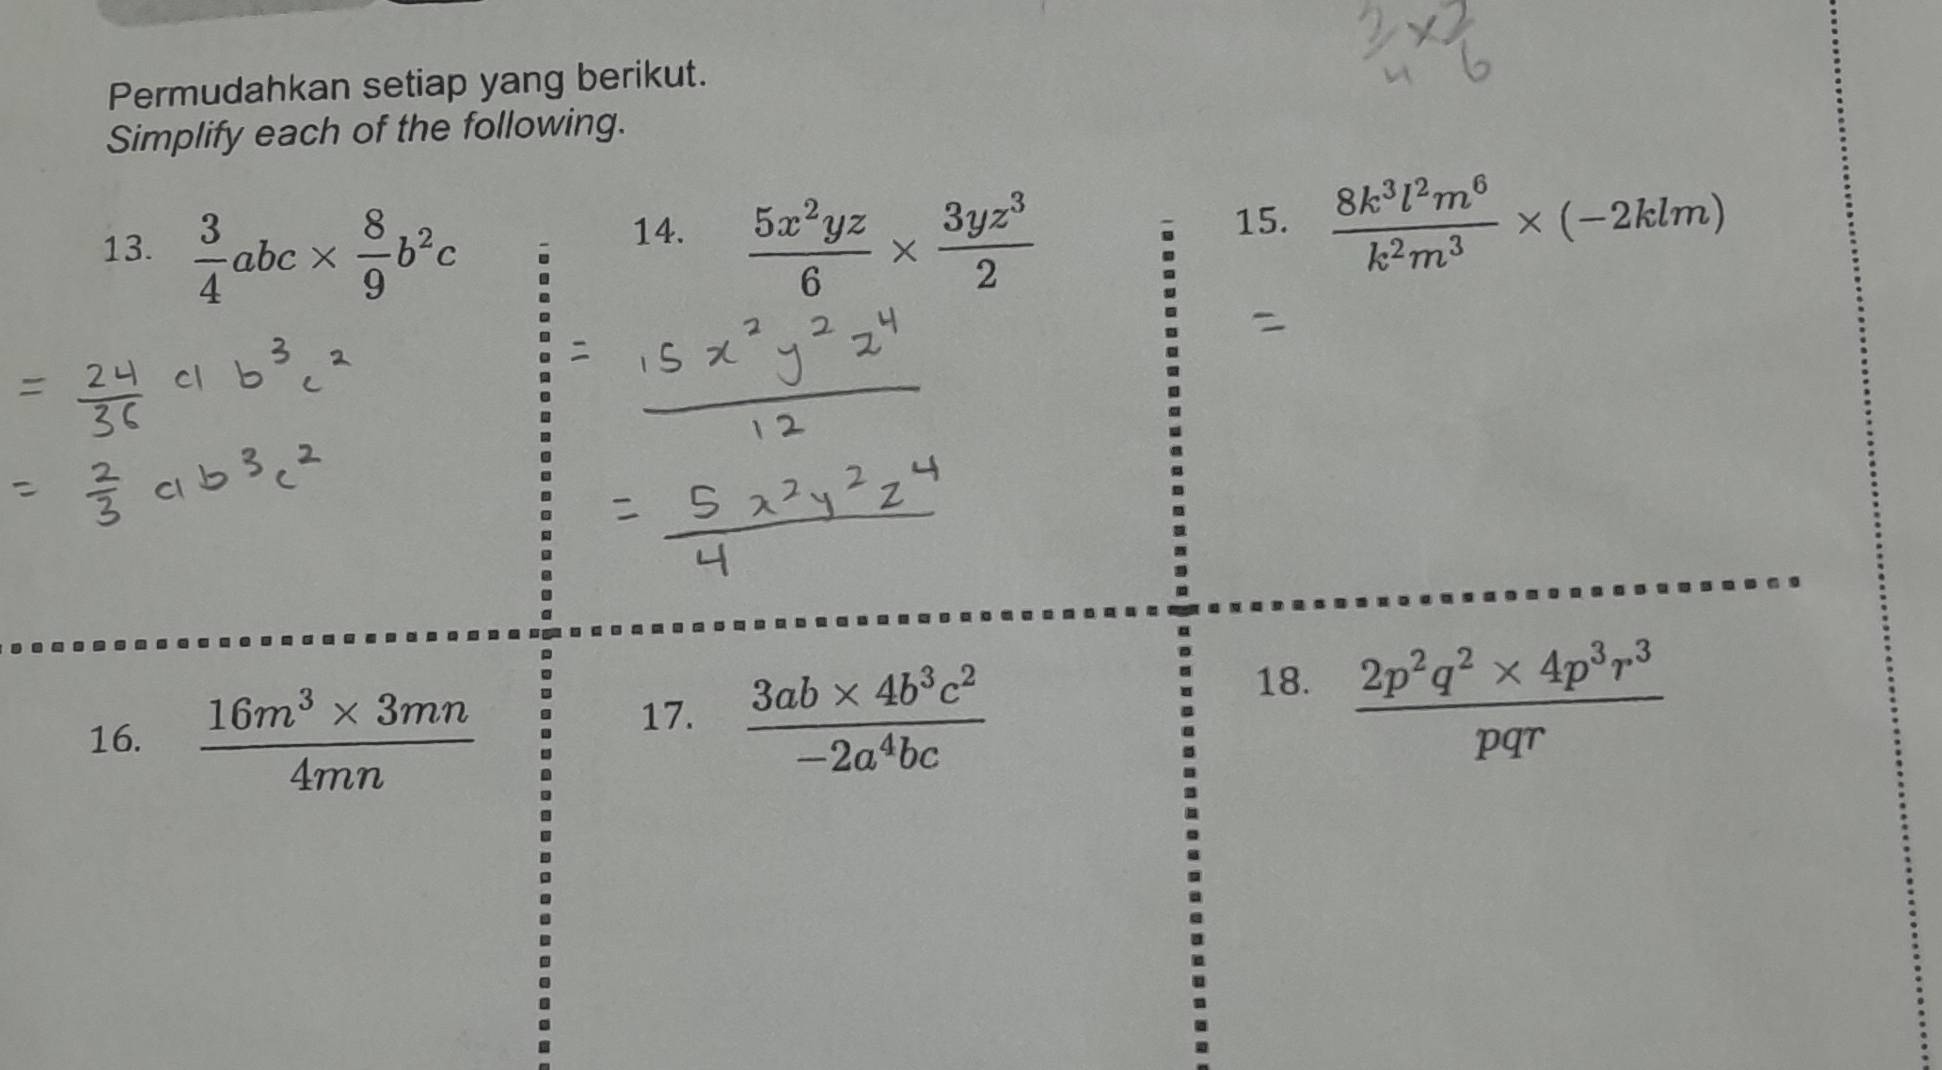 3/4 × 2/6
Permudahkan setiap yang berikut.
Simplify each of the following.
13. 3/4 abc × 8/9 b²c
= 24/36 a b³ c²
= 2/3 a b³ c²
14. 5x²yz/6 × 3yz³/2
= 15 x² y² z⁴/12
= 5 x² y² z⁴/4
15. 8k³l²m⁶/k²m³ × (−2klm)
=
16. 16m³ × 3mn/4mn
17. 3ab × 4b³c²/−2a⁴bc
18. 2p²q² × 4p³r³/pqr